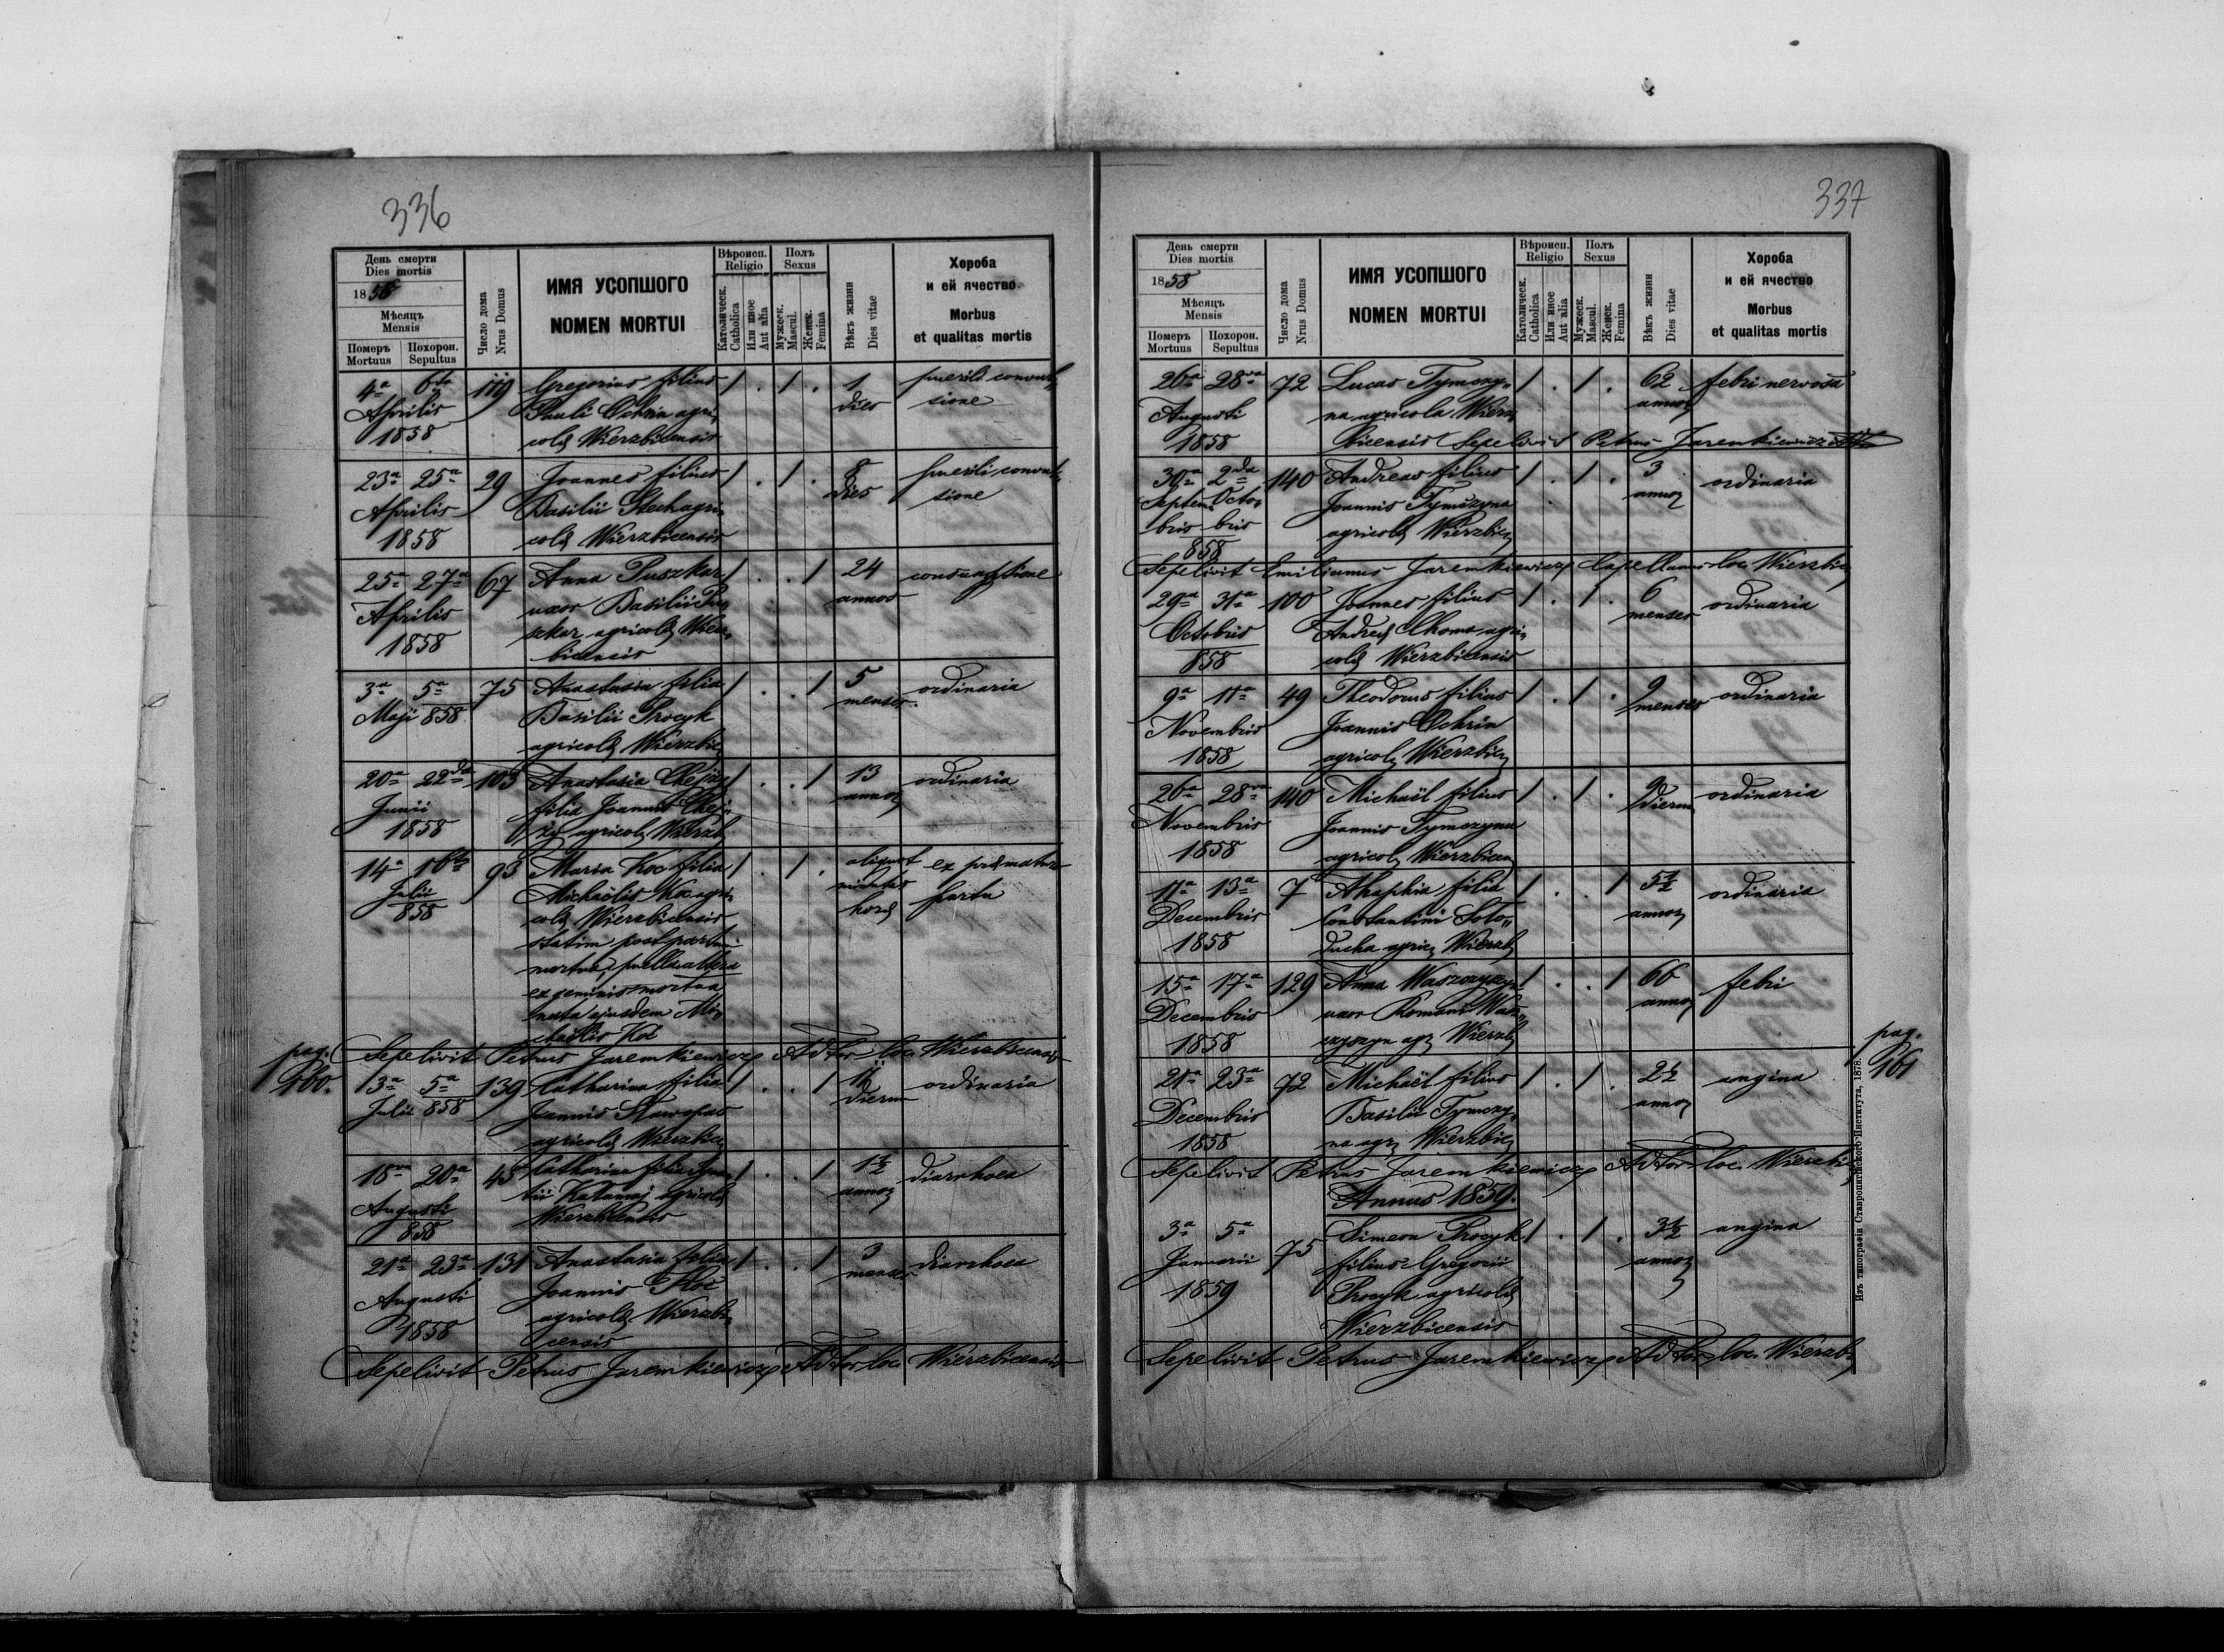 336
День смерти
Dies mortis
1858
Мѣсяцъ
Mensis
Померъ Похорон.
Mortuus Sepultus
Число дома
Nrus Domus
ИМЯ УСОПШОГО
NOMEN MORTUI
Вѣроисп.
Religio
Католическ.
Catholica
Или иное
Aut alia
Полъ
Sexus
Мужеск.
Mascul.
Женск.
Femina
Вѣкъ жизни
Dies vitae
Хороба
и ей ячество
Morbus
et qualitas mortis
4a 6ta 119 Gregorius filius 1 . 1 . 1 puerili convul
Aprilis Pauli Ochrin agri dies sione
1858 colæ Wierzbicensis
23a 25a 29 Joannes filius 1 . 1 . 8 puerili convul
Aprilis Basilii Stech agri dies sione
1858 colæ Wierzbicensis
25a 27a 67 Anna Puszkar 1 . . 1 24 consumptione
Aprilis uxor Basilii Pu annos
1858 szkar agricolæ Wierz
bicensis
3a 5a 75 Anastasia filia 1 . . 1 5 ordinaria
Maji 858 Basilii Procyk menses
agricolæ Wierzbic
20a 22da 103 Anastasia 1 . . 1 13 ordinaria
Junii filia Joannis annor
1858 agricol Wierzb
14a 16ta 93 Maria Koc filia 1 . 1 . aliquot ex præmaturo
Julii Michaëlis Koc agri minutas partu
858 colæ Wierzbicensis horæ
statim post partum
mortua, puella altera
ex geminis mortua
nata ejusdem Mi
chaëlis Koc
pag. Sepelivit Petrus Jaremkiewicz Adtor loc. Wierzbicensis
160. 3a 5a 139 Catharina filia 1 . . 1 11 ordinaria
Julii 858 Joannis dierum
agricolæ Wierzbic
18va 20a 45 Catharina filia 1 . . 1 1½ diarrhoea
Augusti agricolæ annor
858 Wierzbicensis
21a 23a 131 Anastasia filia 1 . . 1 3 diarrhoea
Augusti Joannis Koc menses
1858 agricolæ Wierzbi
censis
Sepelivit Petrus Jaremkiewicz Adtor loc. Wierzbicensis
337
День смерти
Dies mortis
1858
Мѣсяцъ
Mensis
Померъ Похорон.
Mortuus Sepultus
Число дома
Nrus Domus
ИМЯ УСОПШОГО
NOMEN MORTUI
Вѣроисп.
Religio
Католическ.
Catholica
Или иное
Aut alia
Полъ
Sexus
Мужеск.
Mascul.
Женск.
Femina
Вѣкъ жизни
Dies vitae
Хороба
и ей ячество
Morbus
et qualitas mortis
26a 28va 72 Lucas Tymczy„ 1 . 1 . 62 febri nervosa
Augusti na agricola Wierz annor
1858 bicensis Sepelivit Petrus Jaremkiewicz
30a 2da 140 Andreas filius 1 . 1 . 3 ordinaria
Septem Octo Joannis Tymczyna annor
bris bris agricolæ Wierzbic
858
Sepelivit Emilianus Jaremkiewicz Capellanus loc. Wierzbic
29a 31a 100 Joannes filius 1 . 1 . 6 ordinaria
Octobris Andreæ Choma agri menses
858 colæ Wierzbicensis
9a 11a 49 Theodorus filius 1 . 1 . 9 ordinaria
Novembris Joannis Ochrin menses
1858 agricol Wierzbic
26a 28va 140 Michaël filius 1 . 1 . 9 ordinaria
Novembris Joannis Tymczyna dierum
1858 agricol Wierzbicen
11a 13a 7 Ahaphia filia 1 . . 1 5½ ordinaria
Decembris Constantini Soło„ annor
1858 ducha agric Wierzb
15a 17a 129 Anna Waszczyszyn 1 . . 1 66 febri
Decembris uxor Romani Wasz„ annor
1858 czyszyn agr Wierzb
pag.
161
21a 23a 72 Michaël filius 1 . 1 . 2½ angina
Decembris Basilii Tymczy„ annor
1858 na agr Wierzbic
Sepelivit Petrus Jaremkiewicz Adtor loc. Wierzbic
Annus 1859.
3a 5a 75 Simeon Procyk 1 . 1 . 3½ angina
Januarii filius Gregorii annor
1859 Procyk agricolæ
Wierzbicensis
Sepelivit Petrus Jaremkiewicz Adtor loc. Wierzbic
Изъ типографіи Ставропигійского Института, 1878.